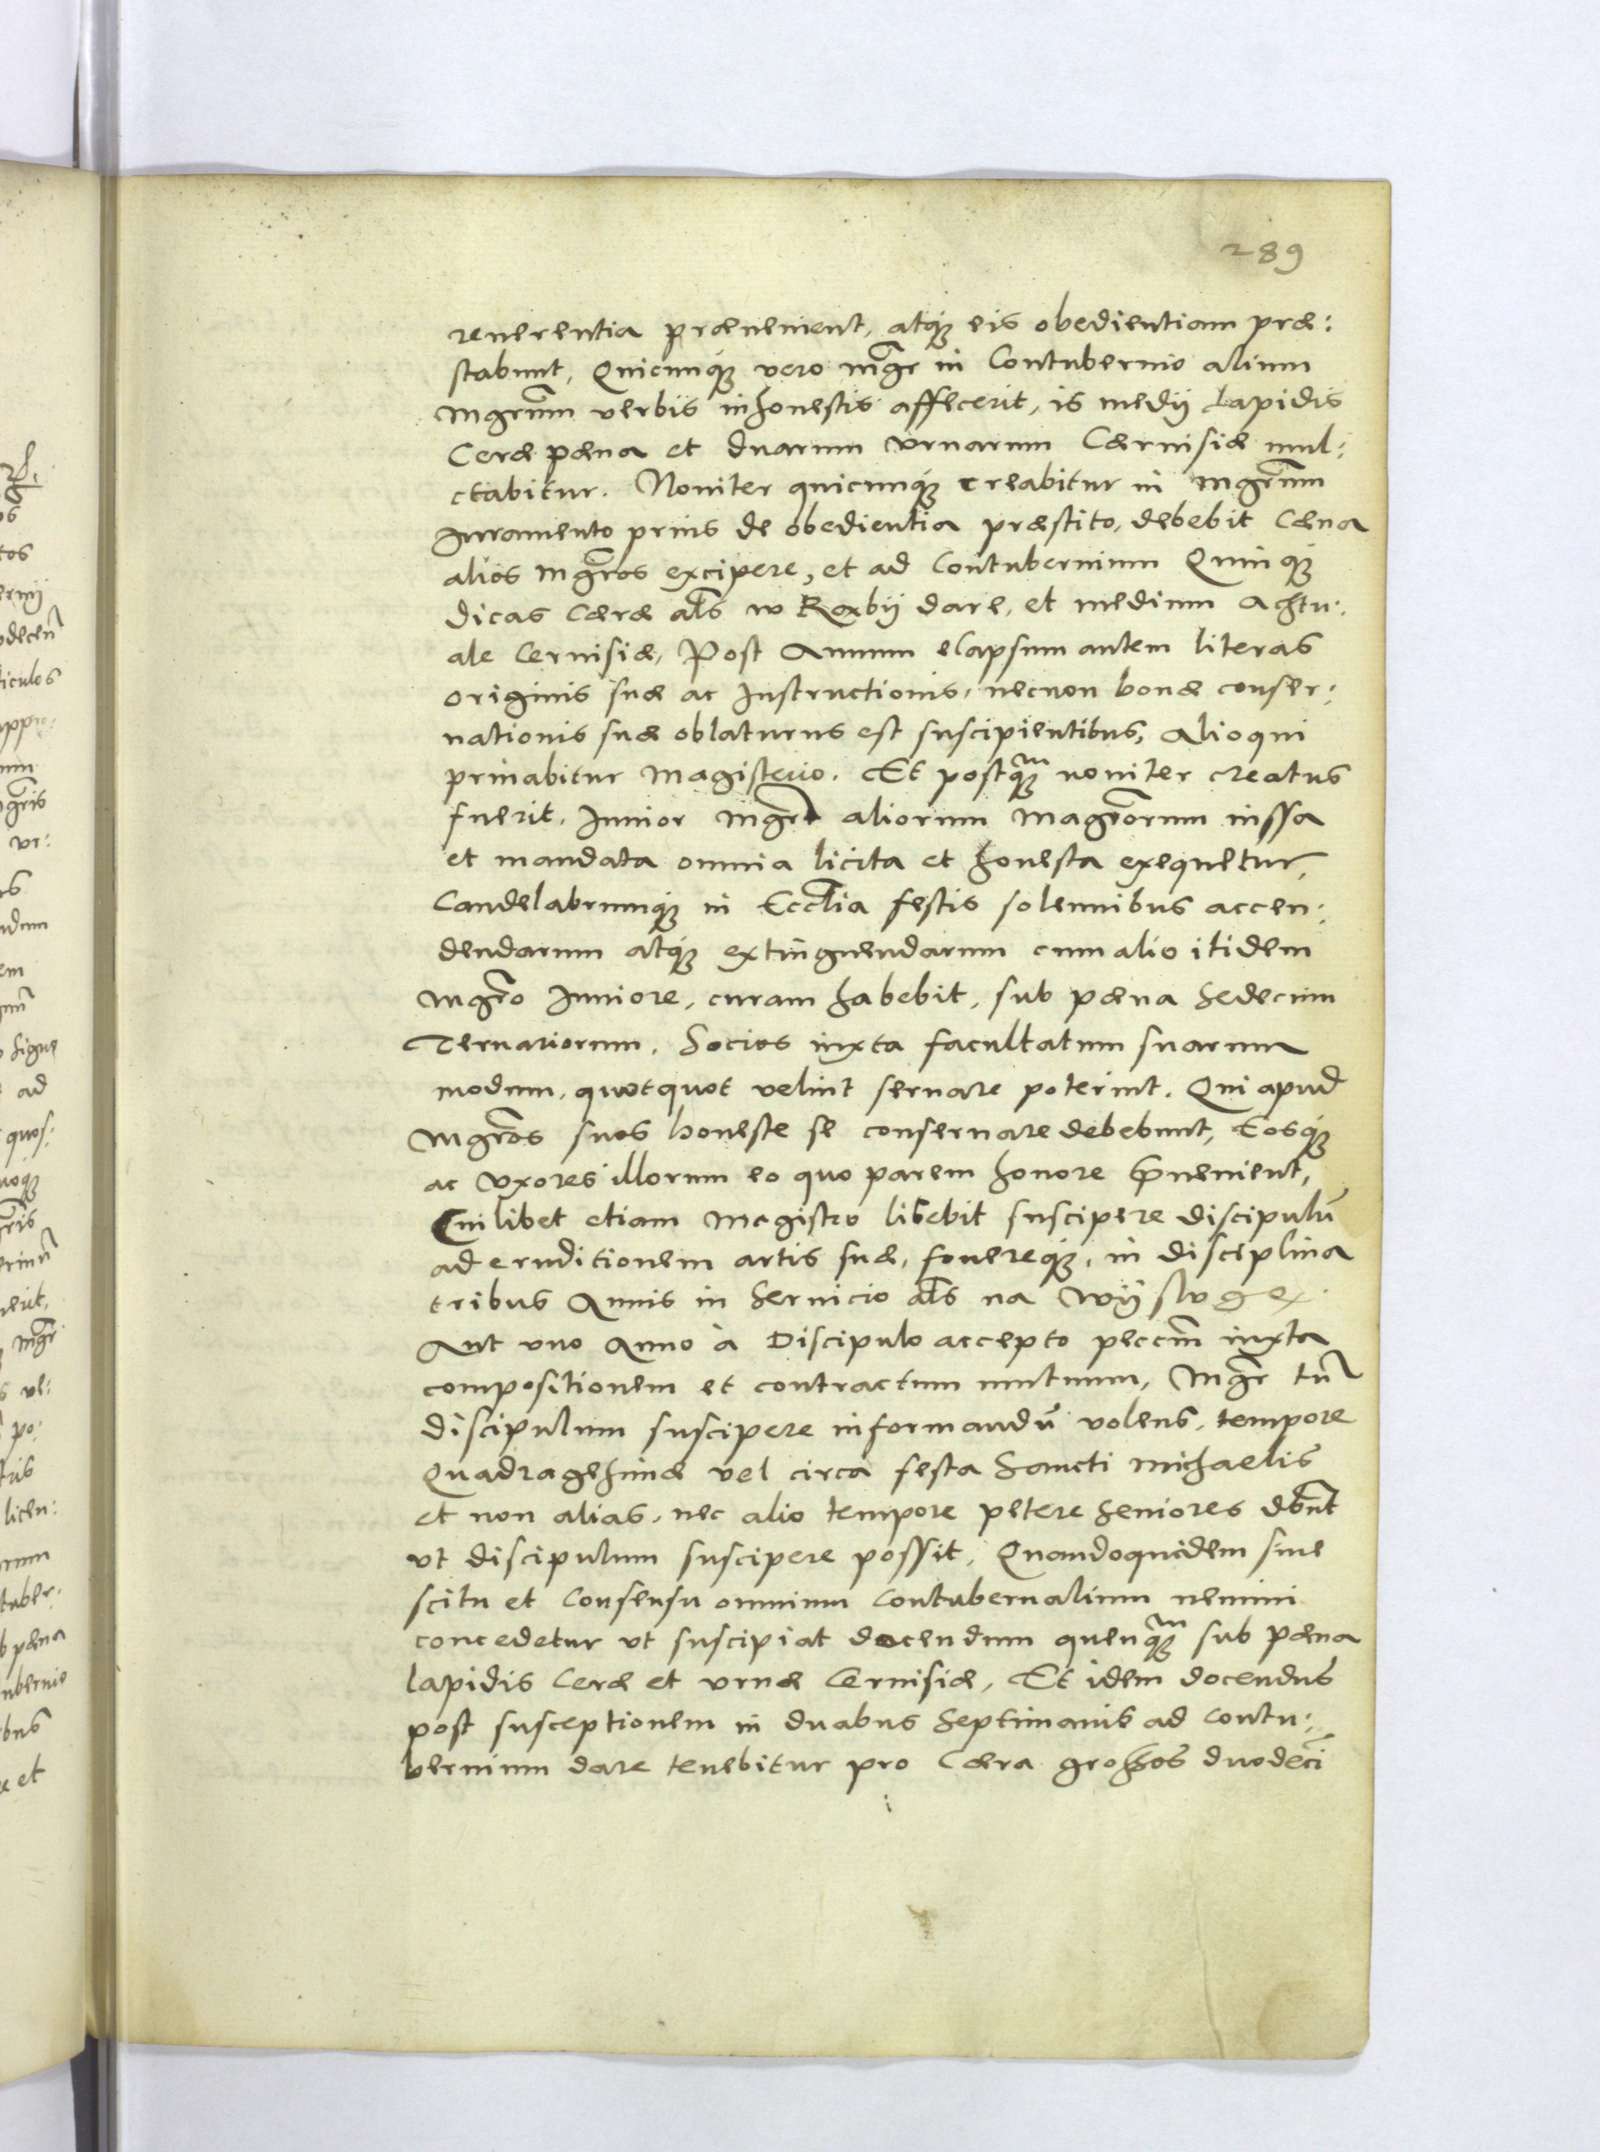 289
reuerentia præuenient, atq́ꝫ eis obedientiam præ:
stabunt, Quicunq́ꝫ vero mgr̃ in Contubernio alium
mgrũm verbis inhonestis affecerit, is medij Lapidis
Ceræ pæna et duarum vrnarum Cæruisiæ mul:
ctabitur. Nouiter quicunq́ꝫ creabitur in mgrũm
Iuramento prius de obedientia præstito, debebit Cæna
alios mgr̃os excipere, et ad Contubernium Quinq́ꝫ
dicas Cæræ als̃ w Roxbij dare, et medium achtu:
ale Ceruisiæ, Post Annum elapsum autem literas
originis suæ ac Instructionis, necnon bonæ conser:
uationis suæ oblaturus est suscipientibus, Alioqui
priuabitur Magisterio. Et postq̃ꝫ nouiter creatus
fuerit, Iunior mgr̃ aliorum magr̃orum iussa
et mandata omnia licita et honesta exequetur,
Candelabrumq́ꝫ in Eccl̃ia festis solennibus accen:
dendarum atq́ꝫ extinguendarum cum alio itidem
mgr̃o Iuniore, curam habebit, sub pæna sedecim
Ternariorum. Socios iuxta facultatum suarum
modum, quotquot velint seruare poterint. Qui apud
mgr̃os suos honeste se conseruare debebunt, Eosq́ꝫ
ac vxores illorum eo quo parem honore p̃uenient,
Cuilibet etiam magistro libebit suscipere discipulũ
ad eruditionem artis suæ, fouereq́ꝫ, in disciplina
tribus Annis in seruicio als̃ na wÿslugex
Aut vno Anno à Discipulo accepto pecc̃m iuxta
compositionem et contractum mutuum, Mgr̃ tñ
discipulum suscipere informandũ volens, tempore
Quadragesimæ vel circa festa Sancti Michaelis
et non alias, nec alio tempore petere seniores dbñt
vt discipulum suscipere possit, Quandoquidem sine
scitu et Consensu omnium Contubernalium nemini
concedetur vt suscipiat docendum quenq̃ꝫ sub pæna
lapidis Ceræ et vrnæ Ceruisiæ, Et idem docendus
post susceptionem in duabus septimanis ad Contu:
bernium dare tenebitur pro Cæra grossos duodecĩ